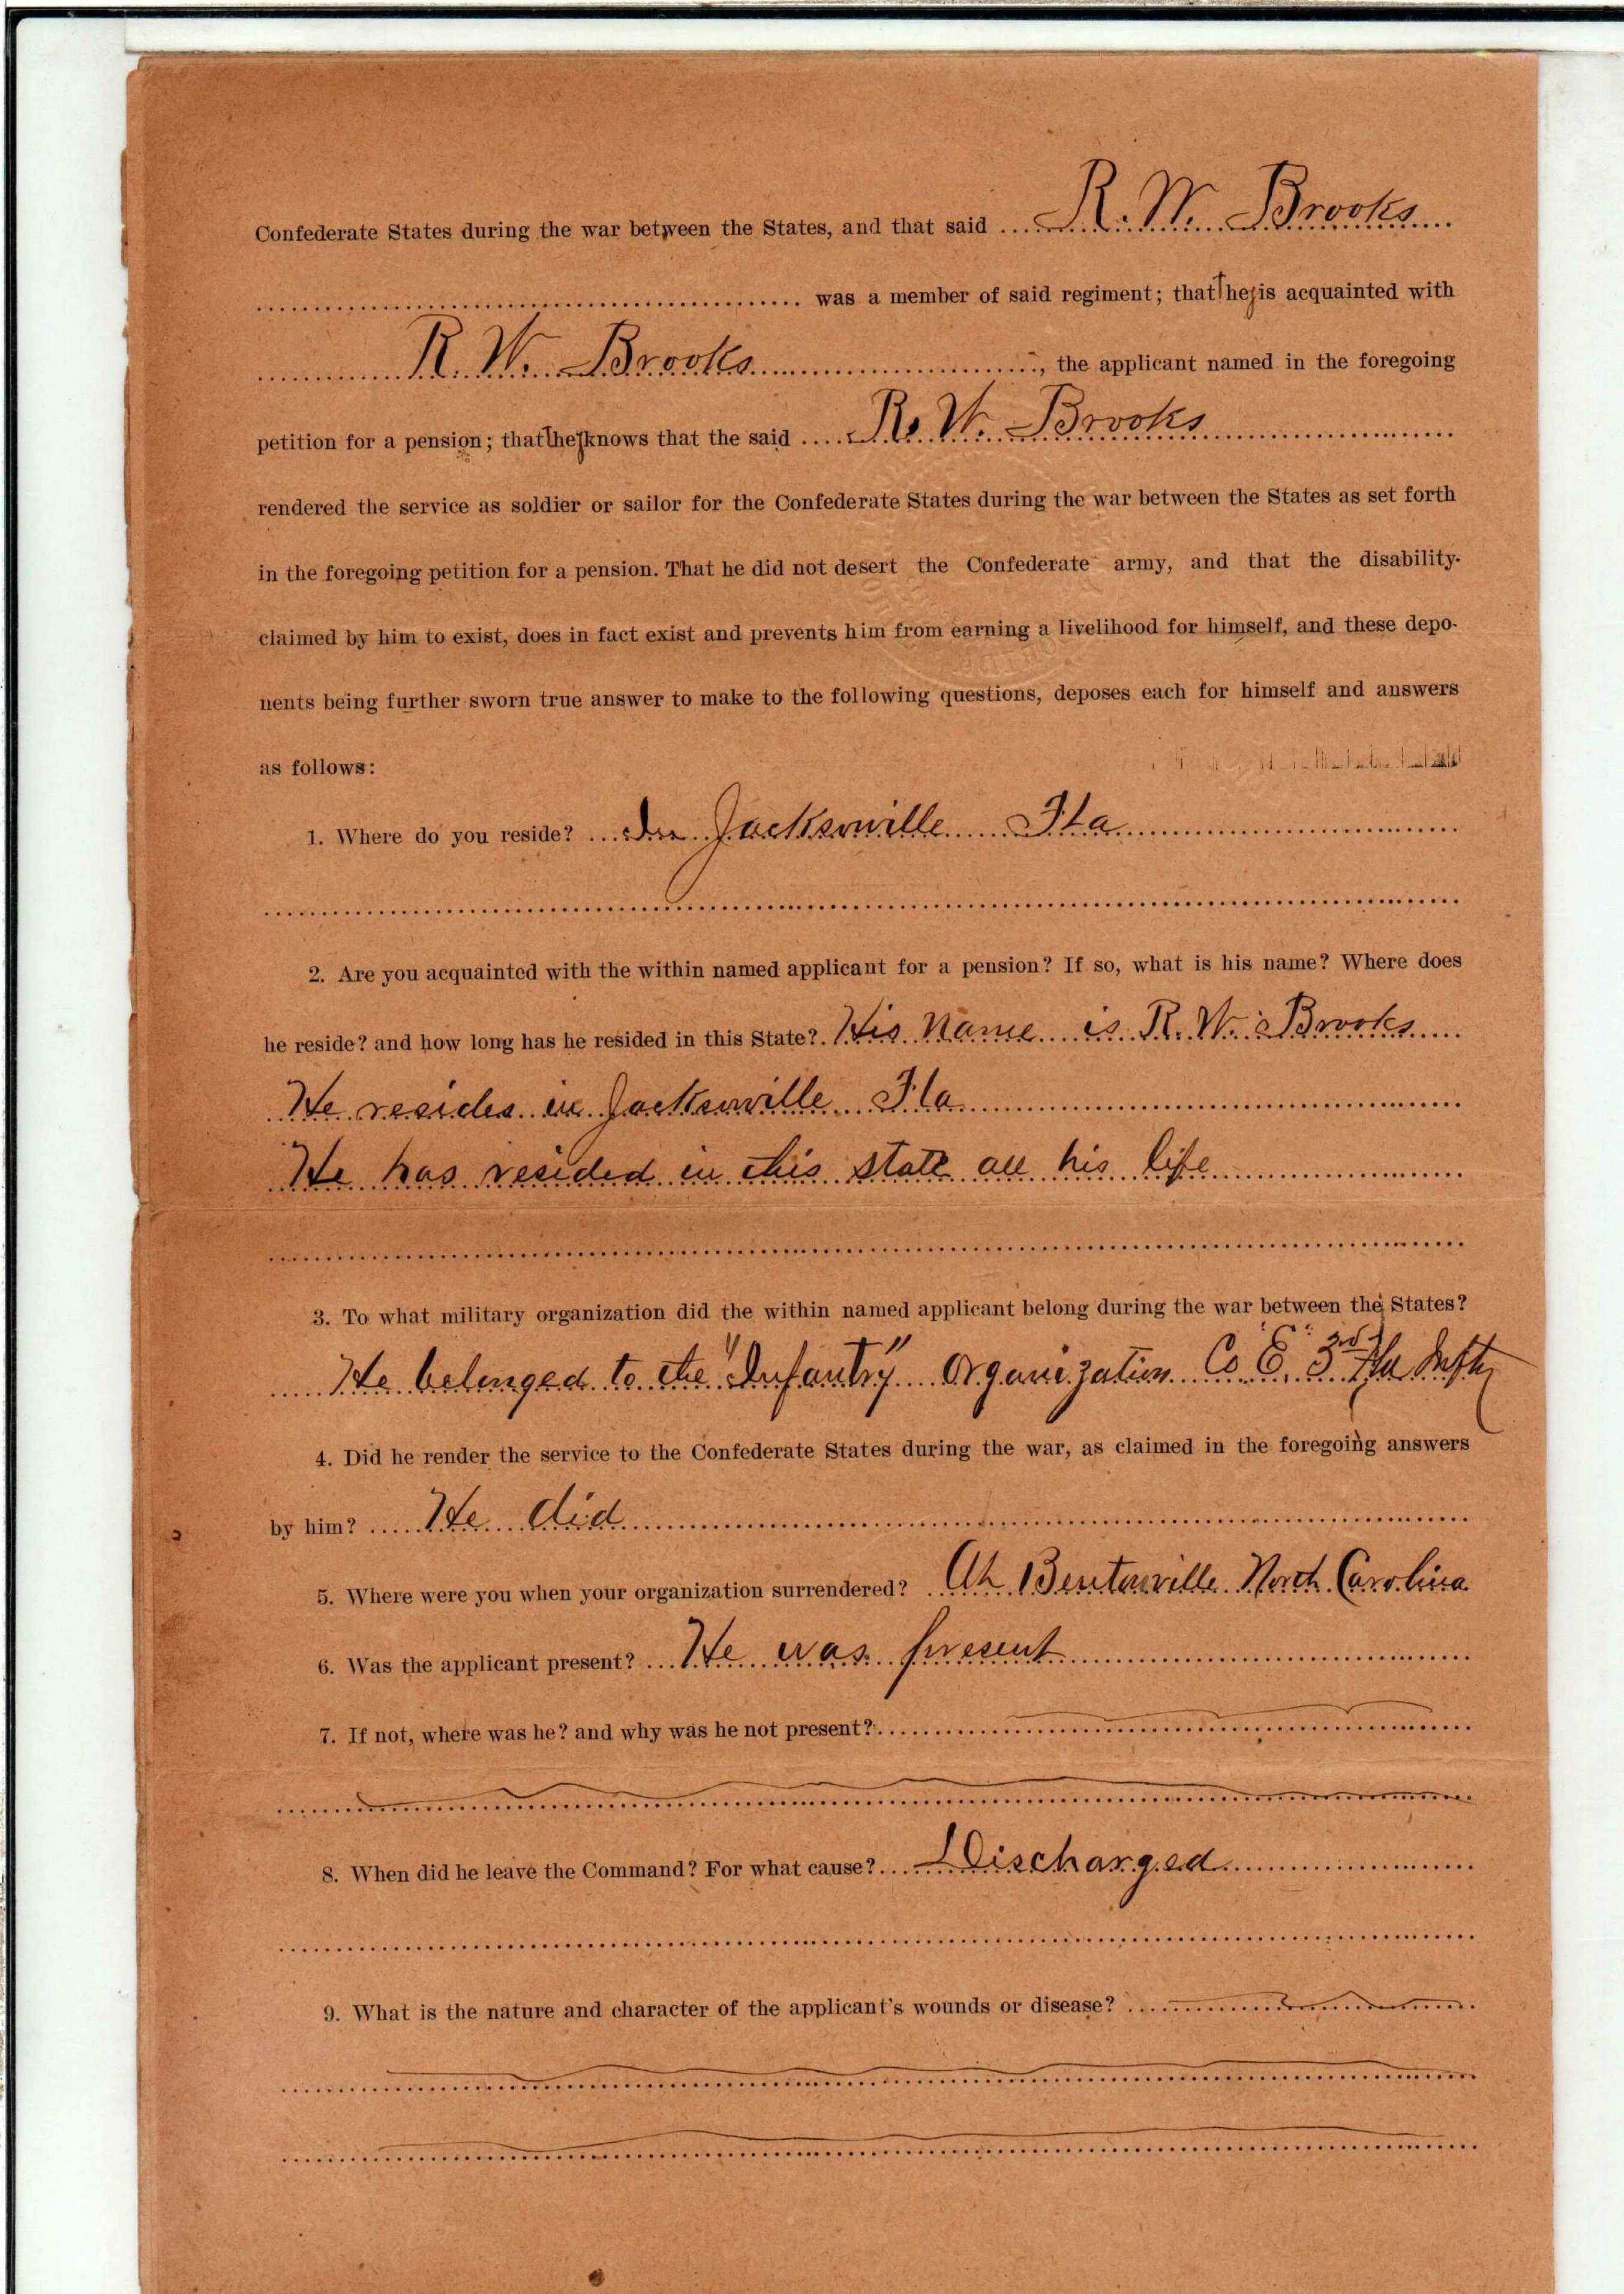 Confederate States during the war between the States, and that said R. W. Brooks
was a member of said regiment; that they is acquainted with
R. W. Brooks, the applicant named in the foregoing
petition for a pension; that they knows that the said R. W. Brooks
rendered the service as soldier or sailor for the Confederate States during the war between the States as set forth
in the foregoing petition for a pension. That he did not desert the Confederate army, and that the disability
claimed by him to exist, does in fact exist and prevents him from earning a livelihood for himself, and these depo-
nents being further sworn true answer to make to the following questions, deposes each for himself and answers
as follows:
1. Where do you reside? In Jacksonville Fla
2. Are you acquainted with the within named applicant for a pension? If so, what is his name? Where does
he reside? and how long has he resided in this State? His Name is R. W. Brooks
He resides in Jacksonville Fla
He has resided in this state all his life
3. To what military organization did the within named applicant belong during the war between the States?
He belonged to the "Infantry" Organization Co "E" 3rd Fla Infty
4. Did he render the service to the Confederate States during the war, as claimed in the foregoing answers
by him? He did
5. Where were you when your organization surrendered? At Bentonville North Carolina
6. Was the applicant present? He was present
7. If not, where was he? and why was he not present?
8. When did he leave the Command? For what cause? Discharged
9. What is the nature and character of the applicant's wounds or disease?